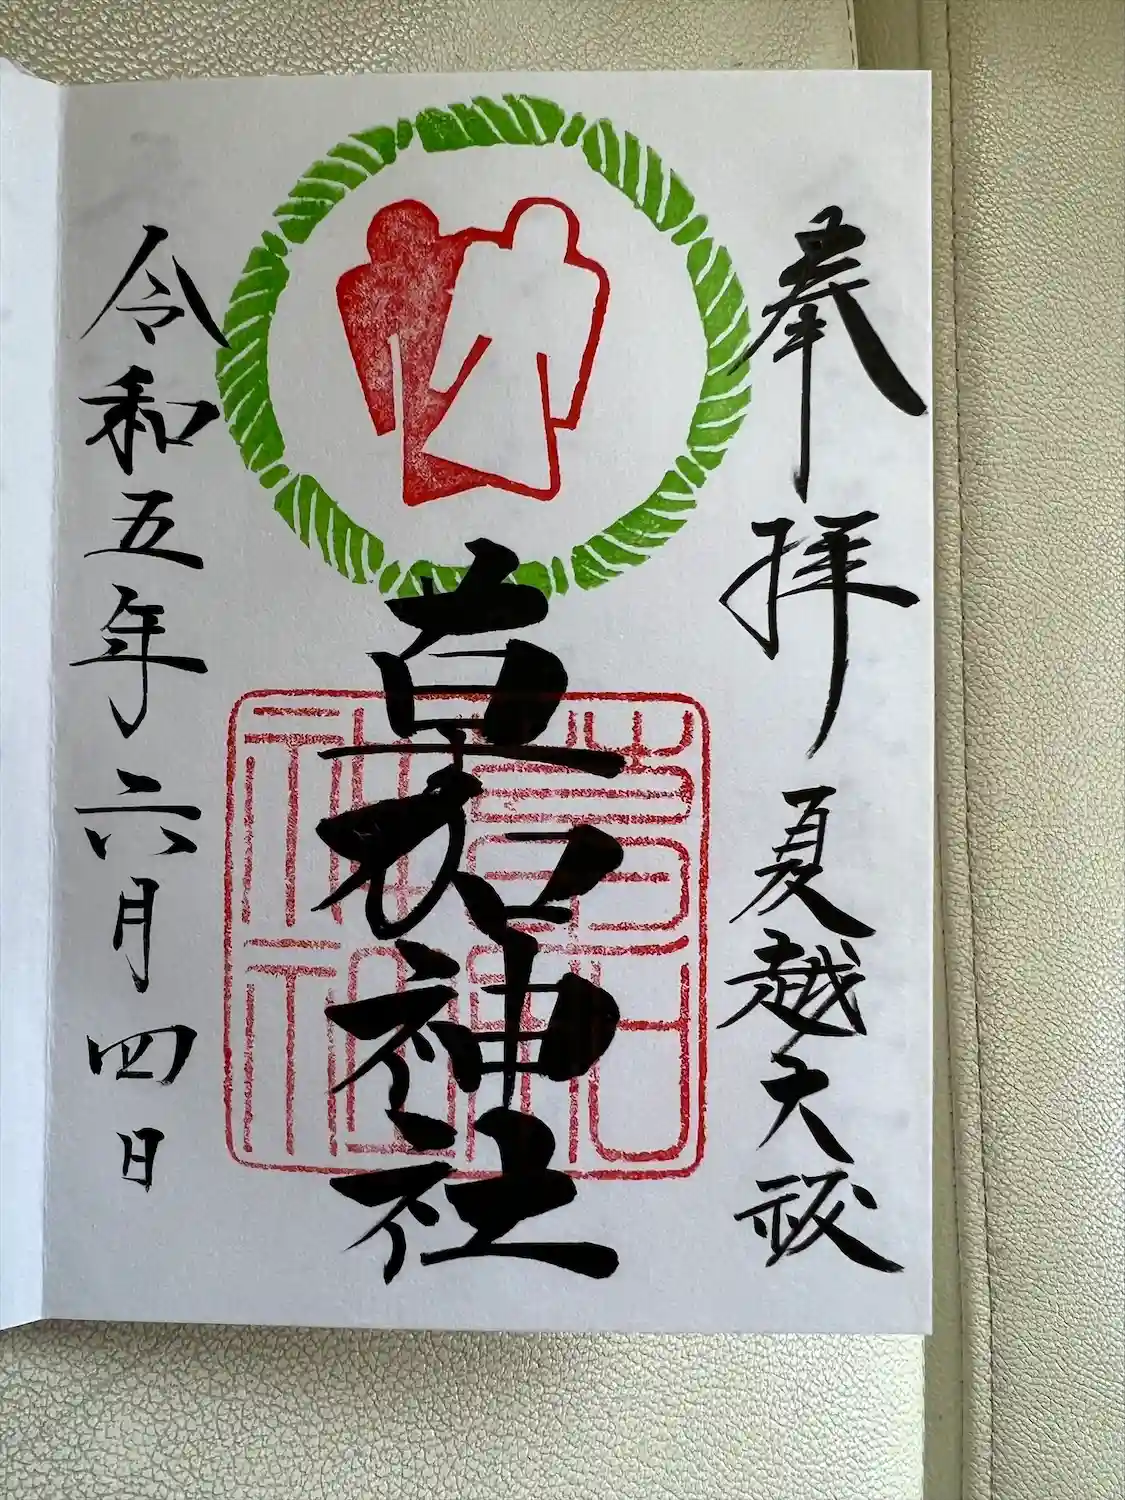 奉拝 夏越大祓
草加神社
令和五年六月四日